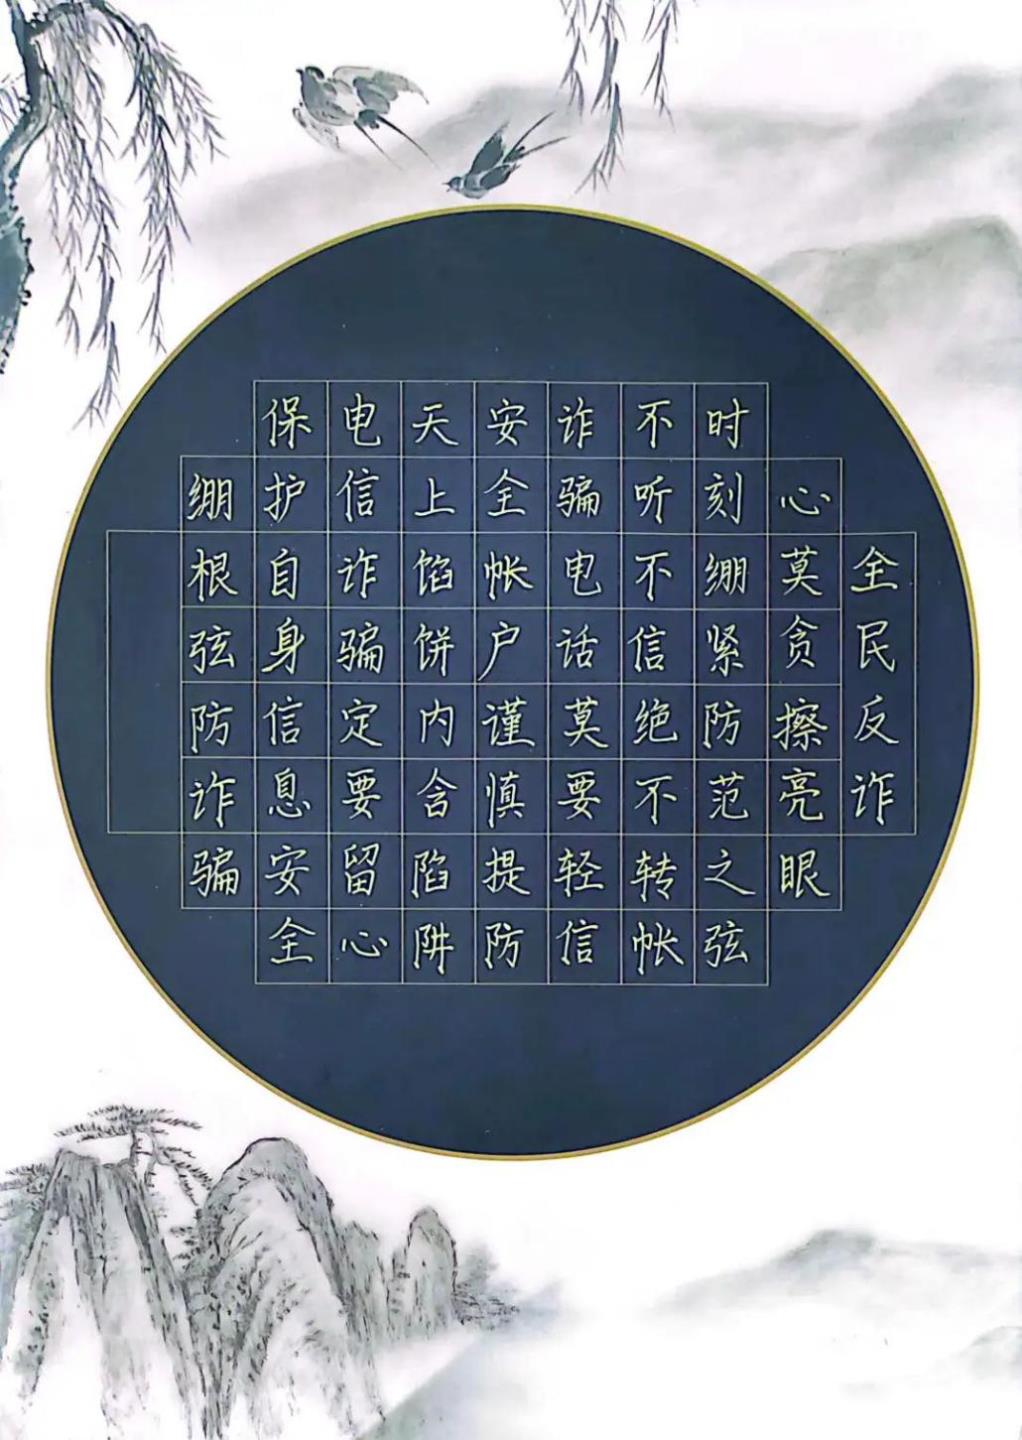 全民反诈
心莫贪擦亮眼
时刻绷紧防范之弦
不听不信绝不转帐
诈骗电话莫要轻信
安全帐户谨慎提防
天上馅饼内含陷阱
电信诈骗定要留心
保护自身信息安全
绷根弦防诈骗